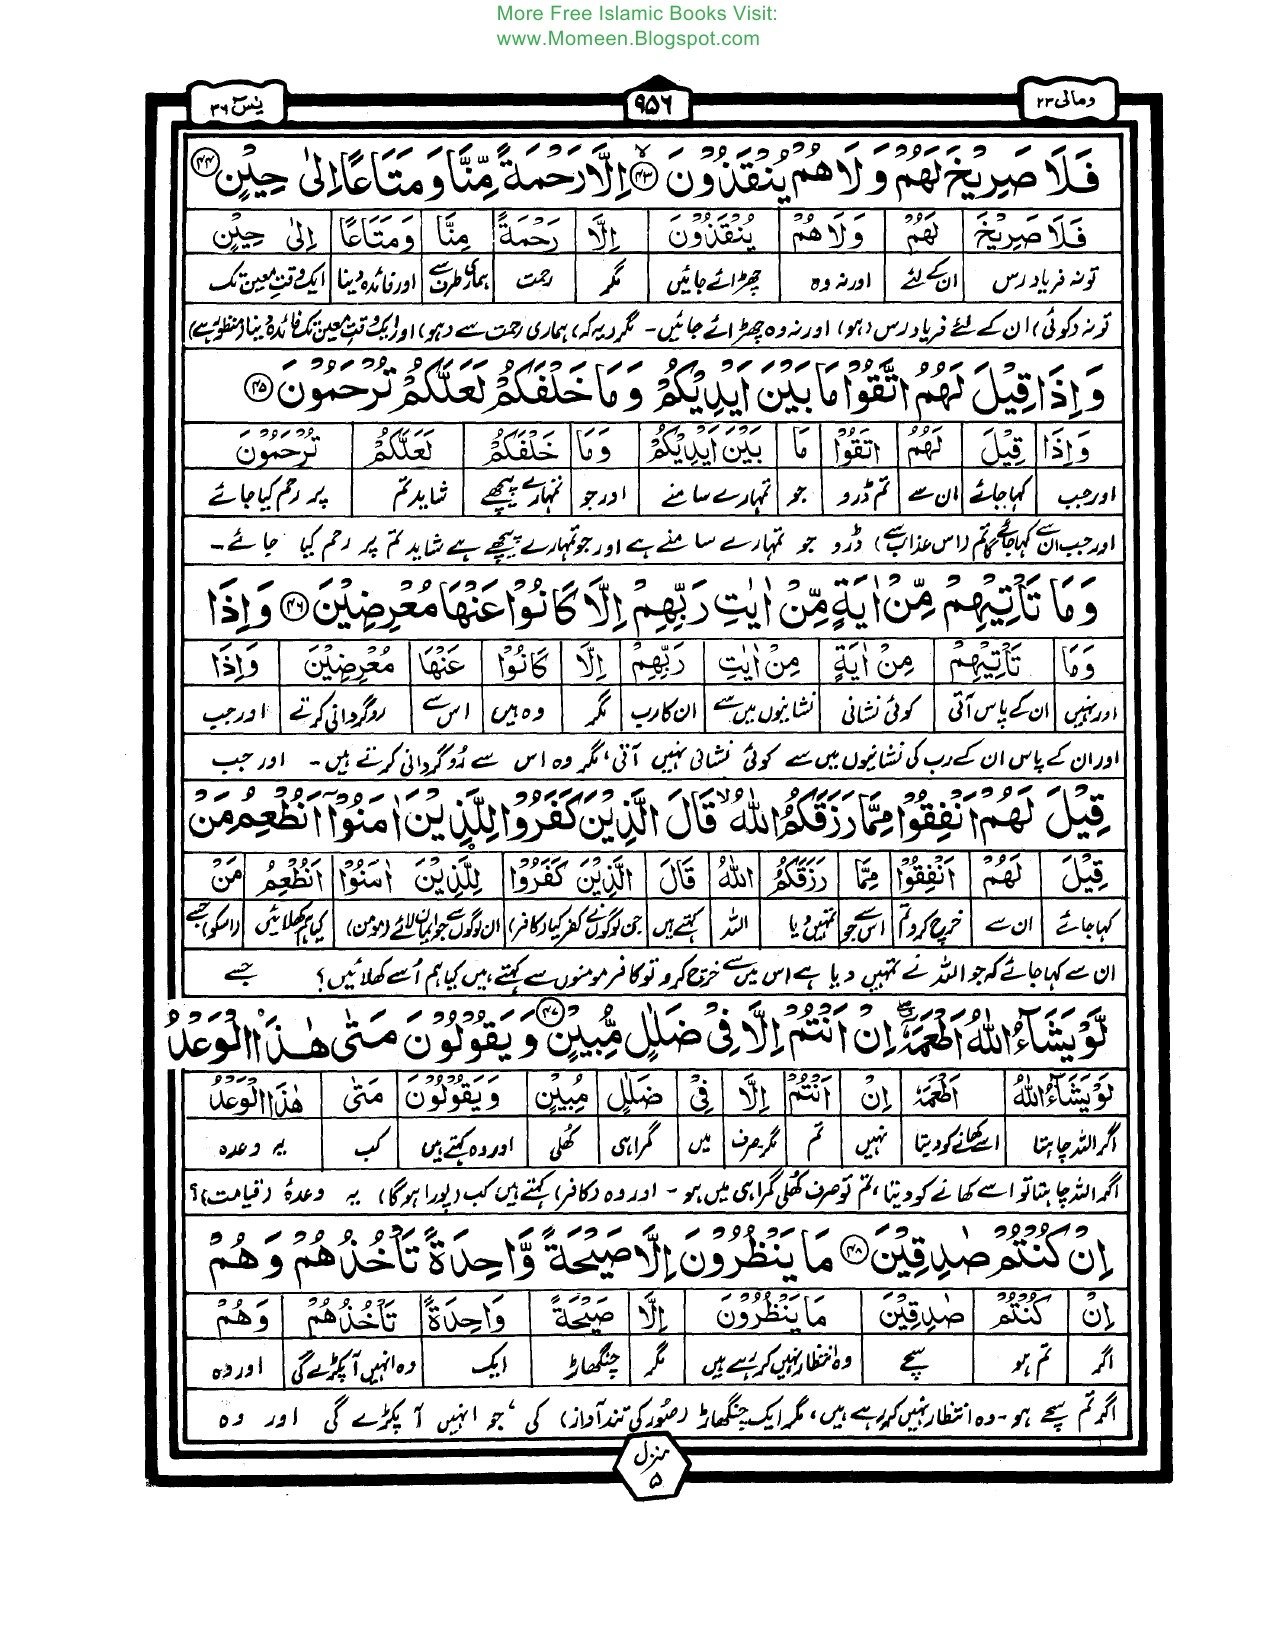 More Free Islamic Books Visit:
www.Momeen.Blogspot.com
یٰسٓ ۳۶ ۹۵۶ ومالی ۲۳
فَلَا صَرِيْخَ لَهُمْ وَلَا هُمْ يُنْقَذُوْنَ ﴿۴۳﴾ اِلَّا رَحْمَةً مِّنَّا وَمَتَاعًا اِلٰى حِيْنٍ ﴿۴۴﴾
فَلَا صَرِيْخَ لَهُمْ وَلَا هُمْ يُنْقَذُوْنَ اِلَّا رَحْمَةً مِنَّا وَمَتَاعًا اِلٰى حِيْنٍ
تو نہ فریاد رس ان کے لئے اور نہ وہ چھڑائے جائیں مگر رحمت ہماری طرف سے اور فائدہ دینا ایک وقتِ معین تک
تو نہ (کوئی) ان کے لئے فریاد رس (ہو) اور نہ وہ چھڑائے جائیں - مگر (یہ کہ) ہماری رحمت سے (ہو) اور ایک وقت معین تک فائدہ دینا (منظور ہے)
وَاِذَا قِيْلَ لَهُمُ اتَّقُوْا مَا بَيْنَ اَيْدِيْكُمْ وَمَا خَلْفَكُمْ لَعَلَّكُمْ تُرْحَمُوْنَ ﴿۴۵﴾
وَاِذَا قِيْلَ لَهُمُ اتَّقُوْا مَا بَيْنَ اَيْدِيْكُمْ وَمَا خَلْفَكُمْ لَعَلَّكُمْ تُرْحَمُوْنَ
اور جب کہا جائے ان سے تم ڈرو جو تمہارے سامنے اور جو تمہارے پیچھے شاید تم پر رحم کیا جائے
اور جب ان سے کہا جائے کہ تم (اس عذاب سے) ڈرو جو تمہارے سامنے ہے اور جو تمہارے پیچھے ہے شاید تم پر رحم کیا جائے -
وَمَا تَاْتِيْهِمْ مِّنْ اٰيَةٍ مِّنْ اٰيٰتِ رَبِّهِمْ اِلَّا كَانُوْا عَنْهَا مُعْرِضِيْنَ ﴿۴۶﴾ وَاِذَا
وَمَا تَاْتِيْهِمْ مِنْ اٰيَةٍ مِنْ اٰيٰتِ رَبِّهِمْ اِلَّا كَانُوْا عَنْهَا مُعْرِضِيْنَ وَاِذَا
اور نہیں ان کے پاس آتی کوئی نشانی نشانیوں میں سے ان کا رب مگر وہ ہیں اس سے روگردانی کرتے اور جب
اور ان کے پاس ان کے رب کی نشانیوں میں سے کوئی نشانی نہیں آتی، مگر وہ اس سے رُوگردانی کرتے ہیں - اور جب
قِيْلَ لَهُمْ اَنْفِقُوْا مِمَّا رَزَقَكُمُ اللّٰهُ ۙ قَالَ الَّذِيْنَ كَفَرُوْا لِلَّذِيْنَ اٰمَنُوْۤا اَنُطْعِمُ مَنْ
قِيْلَ لَهُمْ اَنْفِقُوْا مِمَّا رَزَقَكُمُ اللّٰهُ قَالَ الَّذِيْنَ كَفَرُوْا لِلَّذِيْنَ اٰمَنُوْا اَنُطْعِمُ مَنْ
کہا جائے ان سے خرچ کرو تم اس سے جو تمہیں دیا اللہ کہتے ہیں جن لوگوں نے کفر کیا (کافر) ان لوگوں سے جو ایمان لائے (مومن) کیا ہم کھلائیں (اسکو) جسے
ان سے کہا جائے کہ جو اللہ نے تمہیں دیا ہے اس میں سے خرچ کرو تو کافر مومنوں سے کہتے ہیں کیا ہم اُسے کھلائیں؟ جسے
لَّوْ يَشَآءُ اللّٰهُ اَطْعَمَهٗۤ ۖ اِنْ اَنْتُمْ اِلَّا فِىْ ضَلٰلٍ مُّبِيْنٍ ﴿۴۷﴾ وَيَقُوْلُوْنَ مَتٰى هٰذَا الْوَعْدُ
لَوْ يَشَآءُ اللّٰهُ اَطْعَمَهٗ اِنْ اَنْتُمْ اِلَّا فِىْ ضَلٰلٍ مُبِيْنٍ وَيَقُوْلُوْنَ مَتٰى هٰذَا الْوَعْدُ
اگر اللہ چاہتا اسے کھانے کو دیتا نہیں تم مگر صرف میں گمراہی کھُلی اور وہ کہتے ہیں کب یہ وعدہ
اگر اللہ چاہتا تو اسے کھانے کو دیتا، تم تو صرف کھُلی گمراہی میں ہو - اور وہ (کافر) کہتے ہیں کب (پورا ہوگا) یہ وعدۂ (قیامت)؟
اِنْ كُنْتُمْ صٰدِقِيْنَ ﴿۴۸﴾ مَا يَنْظُرُوْنَ اِلَّا صَيْحَةً وَّاحِدَةً تَاْخُذُهُمْ وَهُمْ
اِنْ كُنْتُمْ صٰدِقِيْنَ مَا يَنْظُرُوْنَ اِلَّا صَيْحَةً وَاحِدَةً تَاْخُذُهُمْ وَهُمْ
اگر تم ہو سچے وہ انتظار نہیں کر رہے ہیں مگر چنگھاڑ ایک وہ انہیں آ پکڑے گی اور وہ
اگر تم سچے ہو - وہ انتظار نہیں کر رہے ہیں، مگر ایک چنگھاڑ (صُور کی تند آواز) کی ، جو انہیں آ پکڑے گی اور وہ
منزل ۵